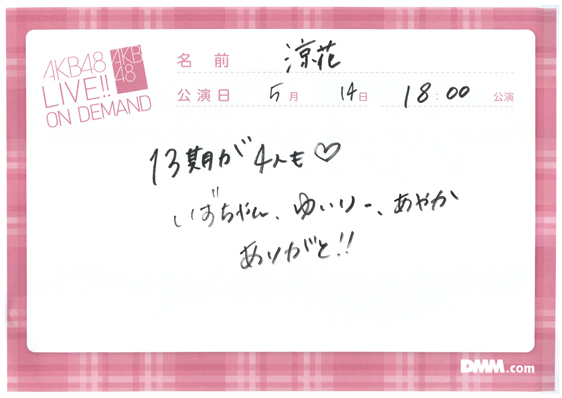 AKB48
LIVE!!
ON DEMAND
AKB
48
名前 涼花
公演日 5月 14日 18:00 公演
13期が4人も♡
いずちゃん、ゆいりー、あやか
ありがと!!
DMM.com